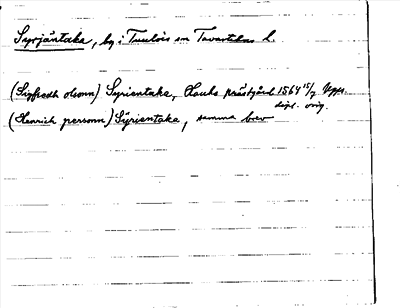 Syrjäntaka, by i Tuulois sn Tavastehus l.
(Sigfredh olsonn) Syrientaka, Hauho prästgård 1564 15/7 Upps.
dipl. orig.
(Henrich personn) Syrientaka, samma brev